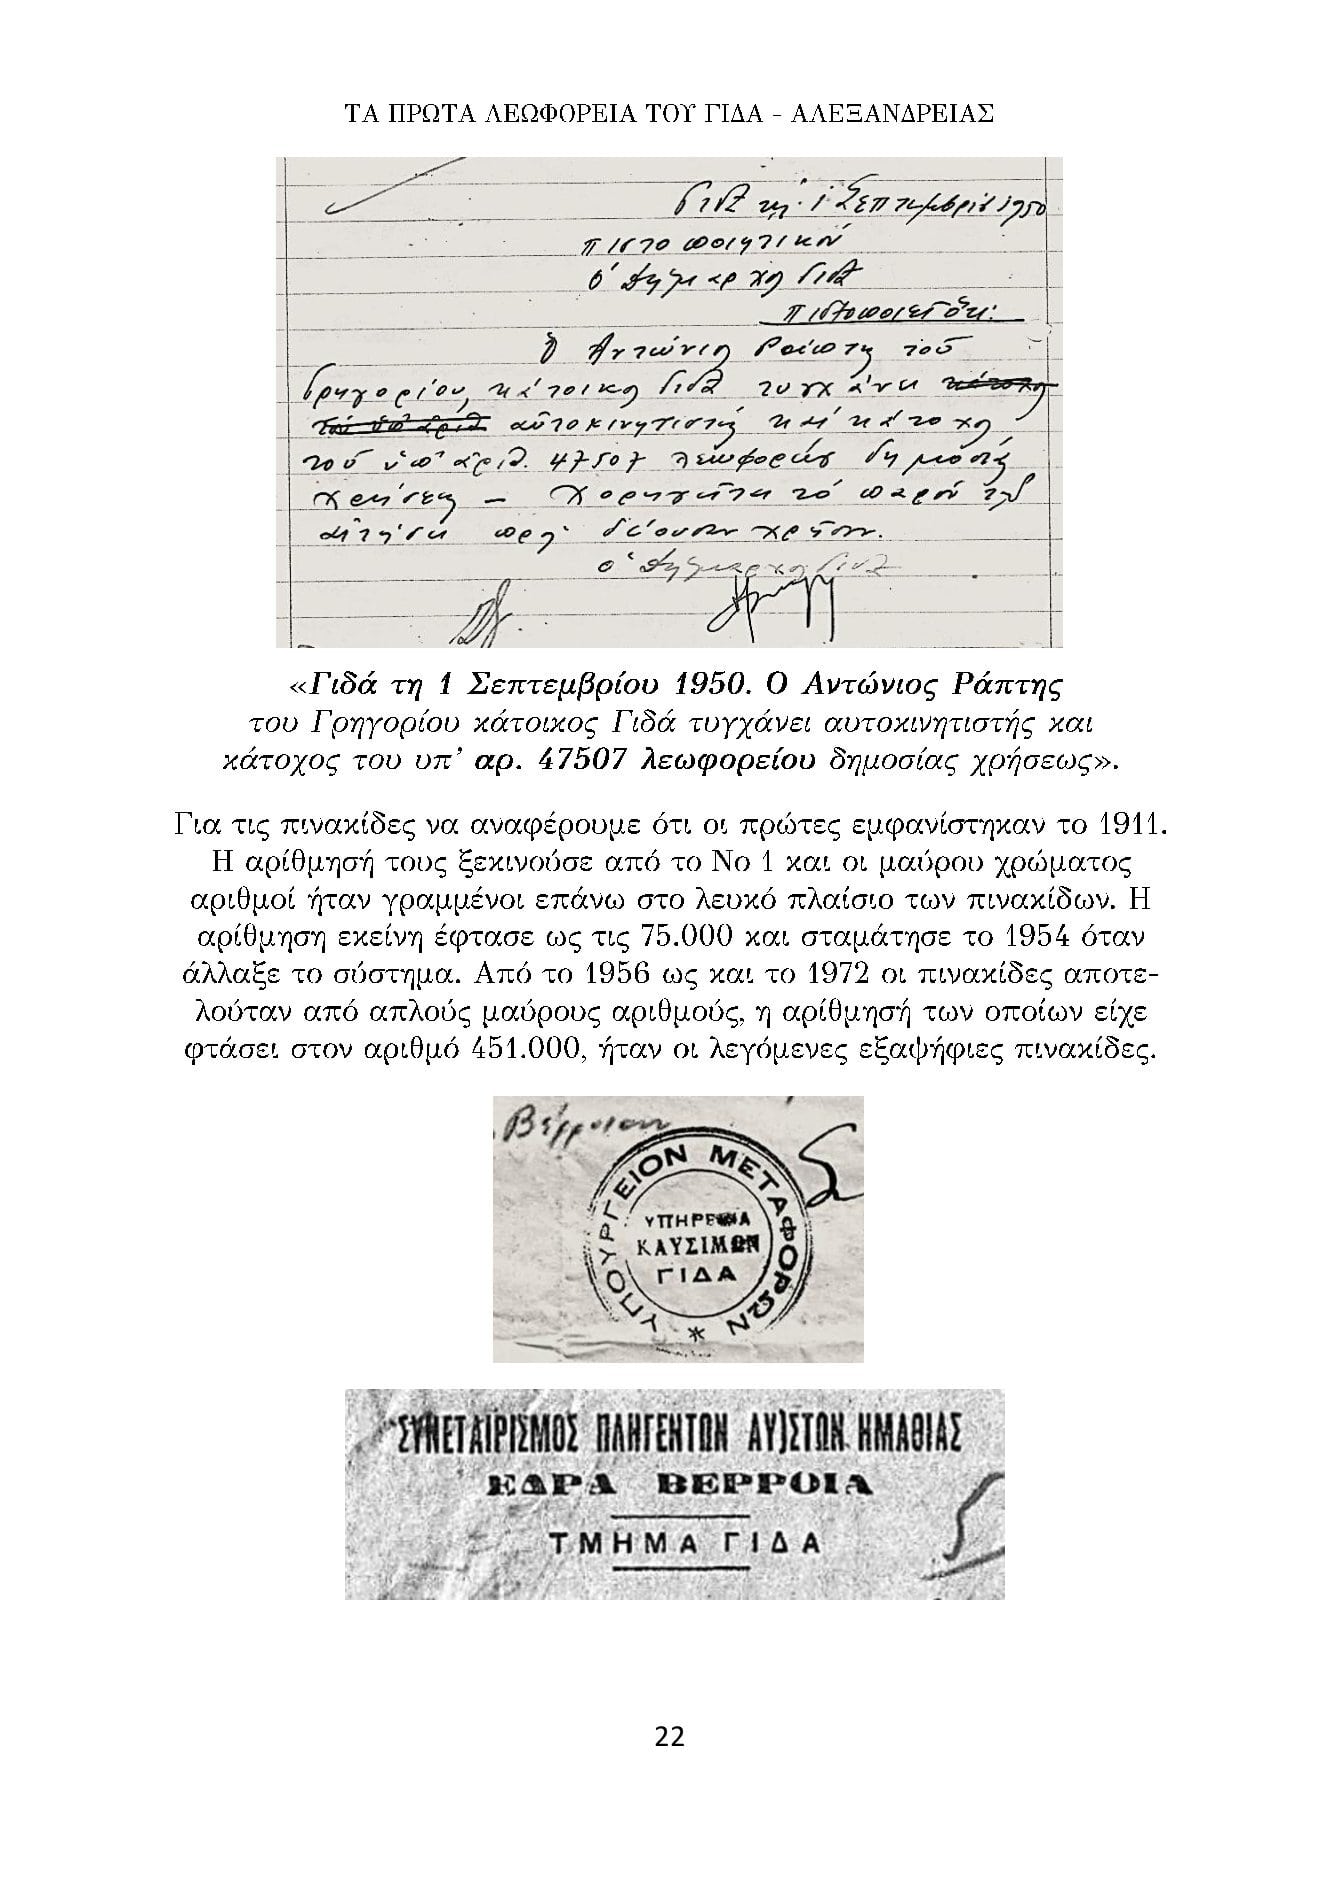 ΤΑ ΠΡΩΤΑ ΛΕΩΦΟΡΕΙΑ ΤΟΥ ΓΙΔΑ - ΑΛΕΞΑΝΔΡΕΙΑΣ
Γιδά τη 1 Σεπτεμβρίου 1950
Πιστοποιητικόν
Ο Δήμαρχος Γιδά
Πιστοποιεί ότι:
Ο Αντώνιος Ράπτης του
Γρηγορίου, κάτοικος Γιδά τυγχάνει κάτοχος
του υπ' αριθ αυτοκινητιστής και κάτοχος
του υπ' αριθ. 47507 λεωφορείου δημοσίας
χρήσεως – Χορηγείται το παρόν τη
αιτήσει προς δέουσαν χρήσιν.
ο Δήμαρχος Γιδά
«Γιδά τη 1 Σεπτεμβρίου 1950. Ο Αντώνιος Ράπτης
του Γρηγορίου κάτοικος Γιδά τυγχάνει αυτοκινητιστής και
κάτοχος του υπ’ αρ. 47507 λεωφορείου δημοσίας χρήσεως».
Για τις πινακίδες να αναφέρουμε ότι οι πρώτες εμφανίστηκαν το 1911.
Η αρίθμησή τους ξεκινούσε από το Νο 1 και οι μαύρου χρώματος
αριθμοί ήταν γραμμένοι επάνω στο λευκό πλαίσιο των πινακίδων. Η
αρίθμηση εκείνη έφτασε ως τις 75.000 και σταμάτησε το 1954 όταν
άλλαξε το σύστημα. Από το 1956 ως και το 1972 οι πινακίδες αποτε-
λούταν από απλούς μαύρους αριθμούς, η αρίθμησή των οποίων είχε
φτάσει στον αριθμό 451.000, ήταν οι λεγόμενες εξαψήφιες πινακίδες.
Βέρροιαν
ΥΠΟΥΡΓΕΙΟΝ ΜΕΤΑΦΟΡΩΝ
ΥΠΗΡΕΣΙΑ
ΚΑΥΣΙΜΩΝ
ΓΙΔΑ
ΣΥΝΕΤΑΙΡΙΣΜΟΣ ΠΛΗΓΕΝΤΩΝ ΑΥ)ΣΤΩΝ ΗΜΑΘΙΑΣ
ΕΔΡΑ ΒΕΡΡΟΙΑ
ΤΜΗΜΑ ΓΙΔΑ
22